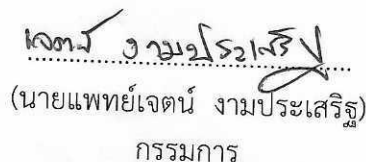 เจตน์ งามประเสริฐ
(นายแพทย์เจตน์ งามประเสริฐ)
กรรมการ